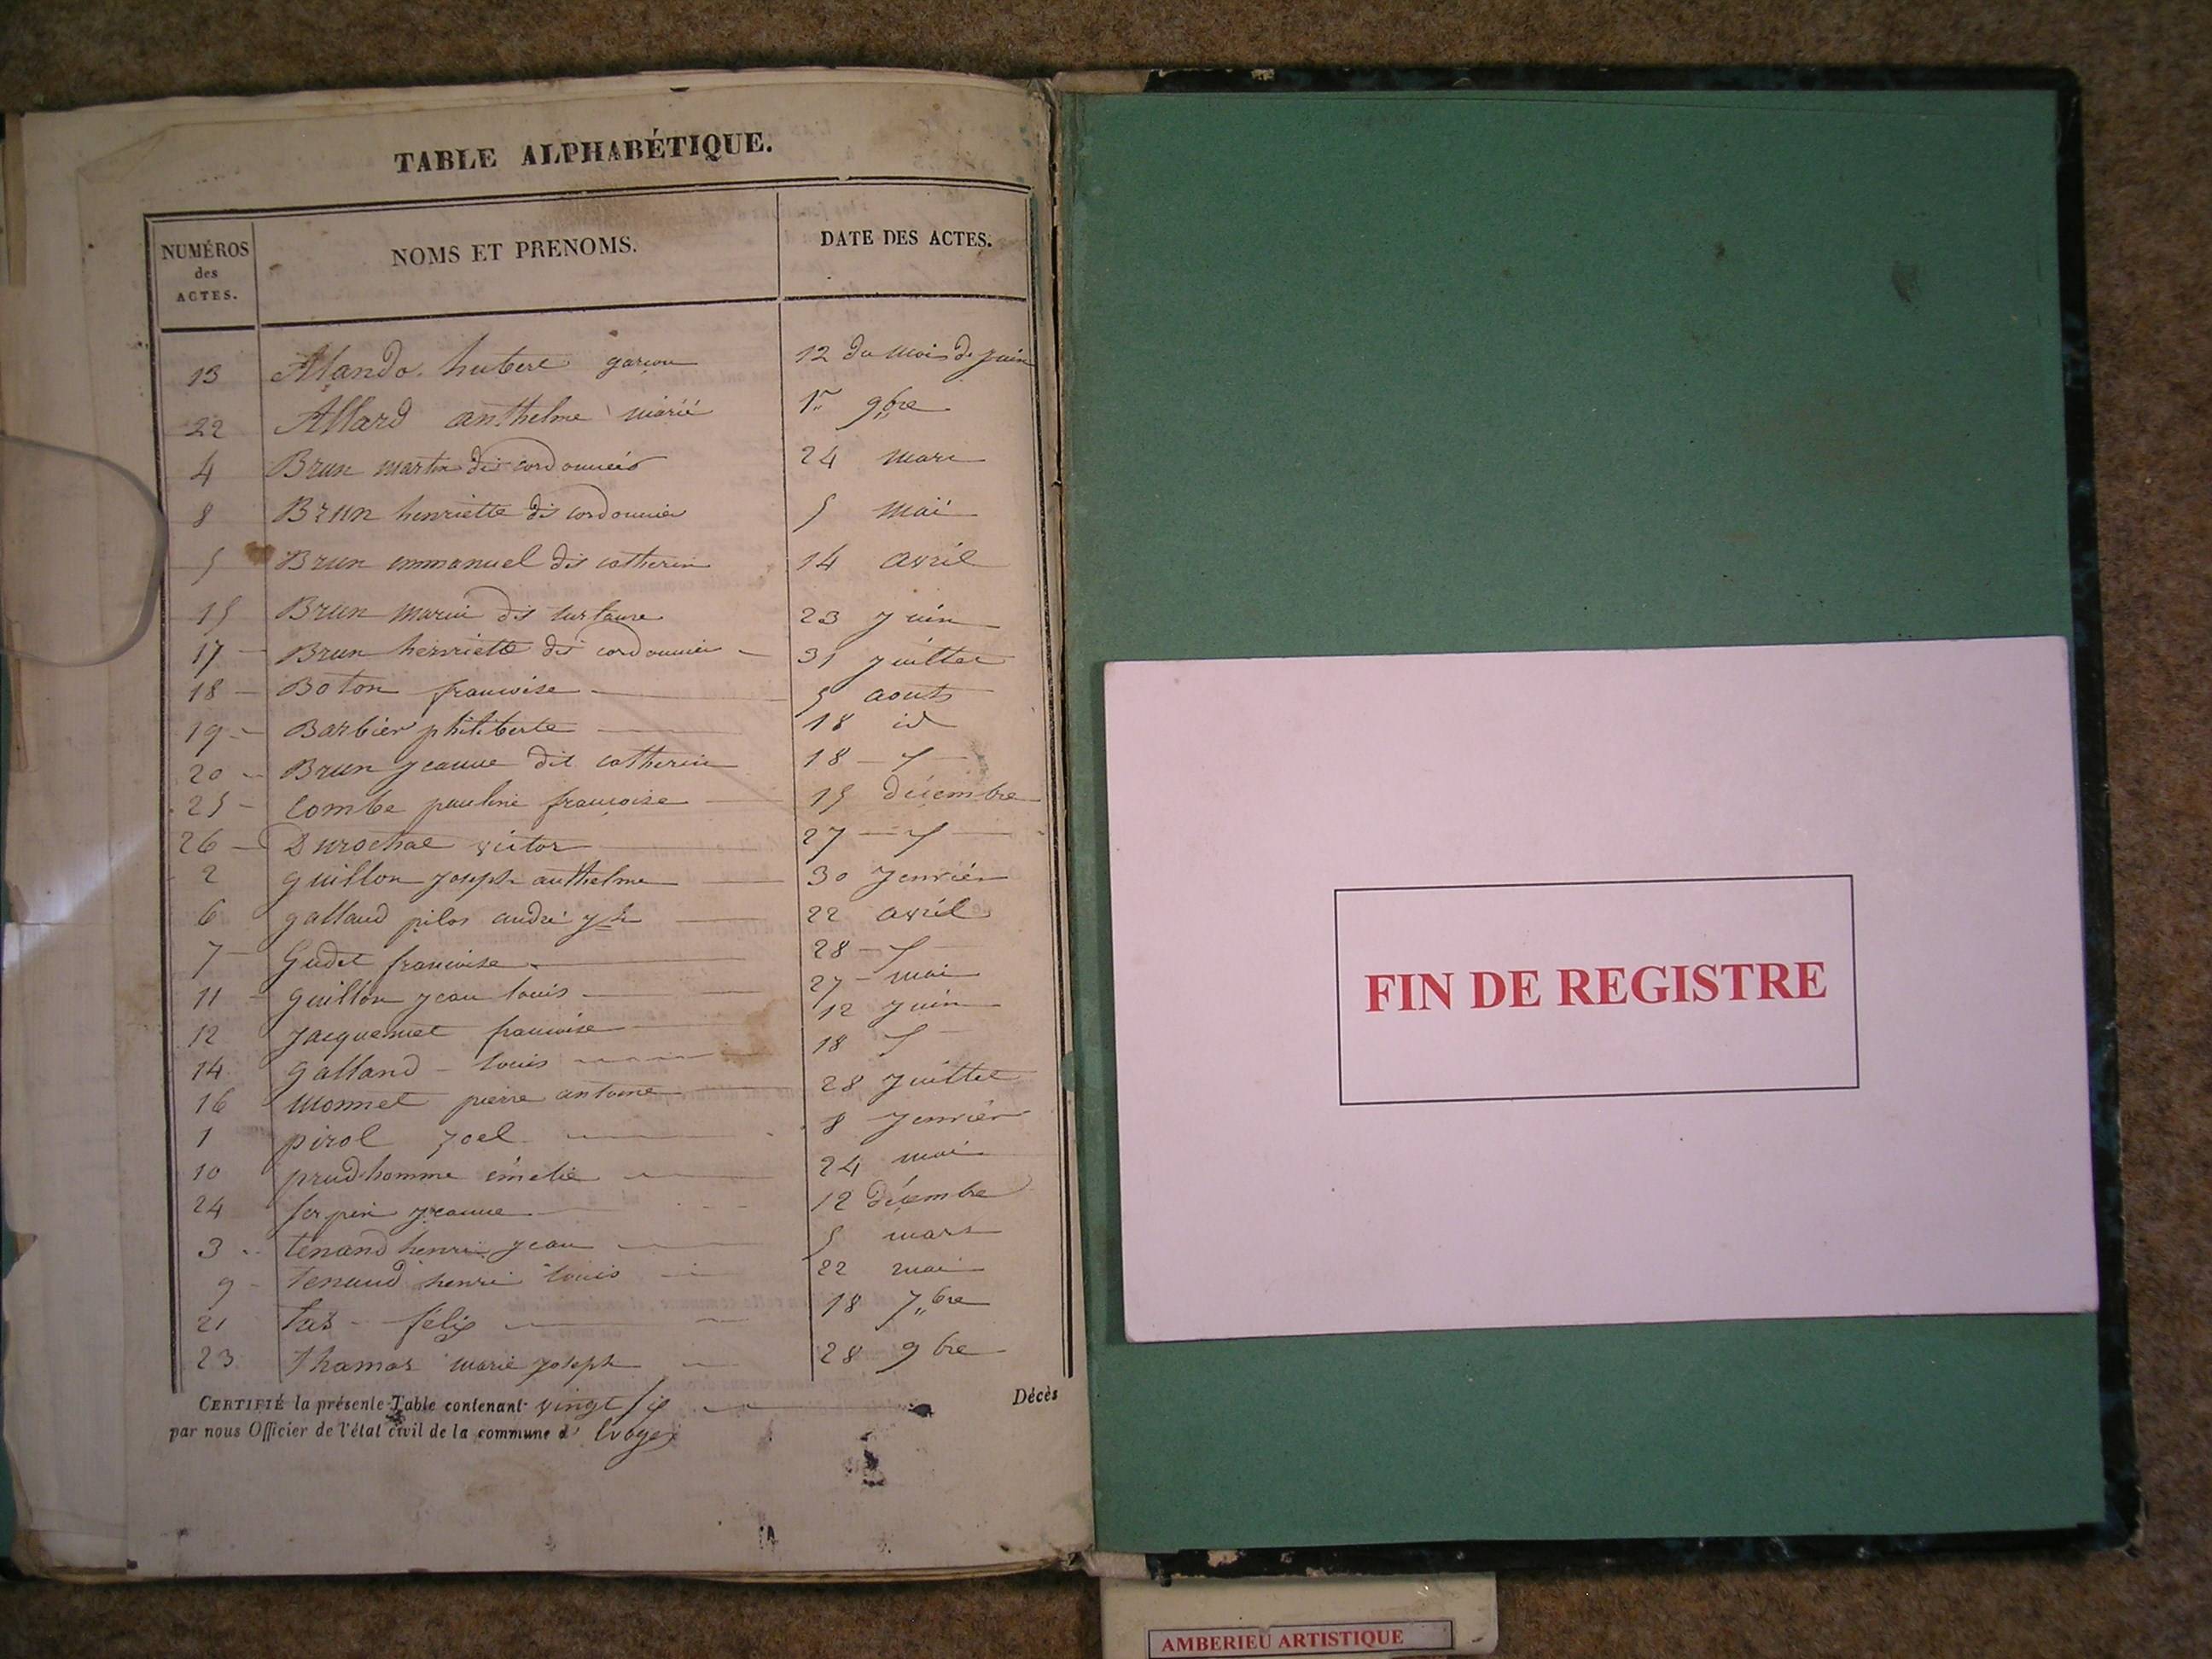 TABLE ALPHABÉTIQUE.
NUMÉROS
des
ACTES.
NOMS ET PRENOMS.
DATE DES ACTES.
13 Alando hubert garçon 12 du mois de juin
22 Allard anthelme marié 1er 9bre
4 Brun martin dit cordonnier 24 mars
8 Brun henriette dit cordonnier 5 mai
5 Brun emmanuel dit catherin 14 avril
15 Brun marie dit 23 juin
17 Brun henriette dit cordonnier 31 juillet
18 Boton francoise 5 aouts
19 Barbier philiberte 18 id
20 Brun jeanne dit catherin 18
25 Combe pauline françoise 15 décembre
26 Durochat victor 27
2 guillon joseph anthelme 30 jenvier
6 galland pilos andré 22 avril
7 Gudet francoise 28
11 guillon jean louis 27 mai
12 jacquemet francoise 12 juin
14 galland louis 18
16 monnet pierre antoine 28 juillet
1 pirol joel 8 jenvier
10 prud-homme émelie 24 mai
24 serpin jeanne 12 décembre
3 tenand henri jean 5 mars
9 tenand henri louis 22 mai
21 félix 18 7bre
23 thomas marie joseph 28 9bre
CERTIFIÉ la présente Table contenant vingt six Décès
par nous Officier de l'état civil de la commune d' Evoges
FIN DE REGISTRE
AMBERIEU ARTISTIQUE